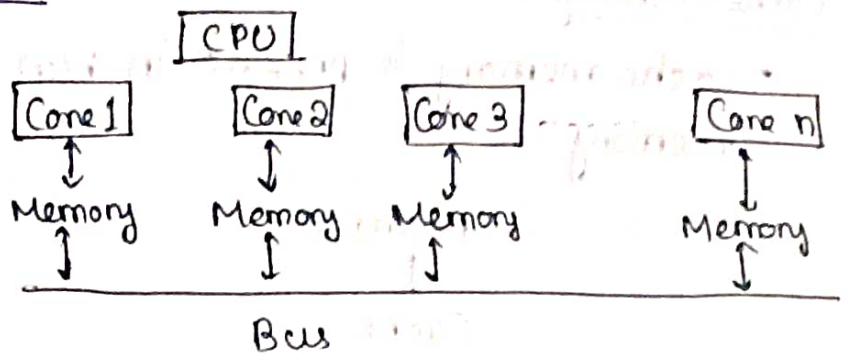 CPU
Core 1 Core 2 Core 3 ---- Core n
Memory Memory Memory Memory
Bus